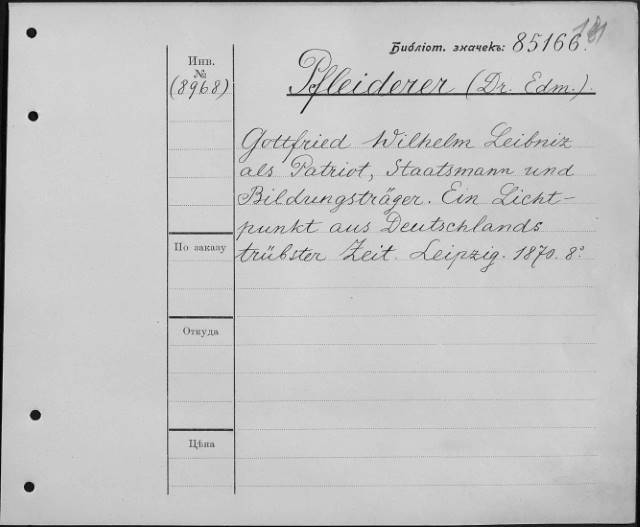 Библіот. значекъ: 85166.
Инв.
№
(8968)
Pfleiderer (Dr. Edm.).
Gottfried Wilhelm Leibniz
als Patriot, Staatsmann und
Bildungsträger. Ein Licht-
punkt aus Deutschlands
trübster Zeit. Leipzig. 1870. 8°
По заказу
Откуда
Цѣна